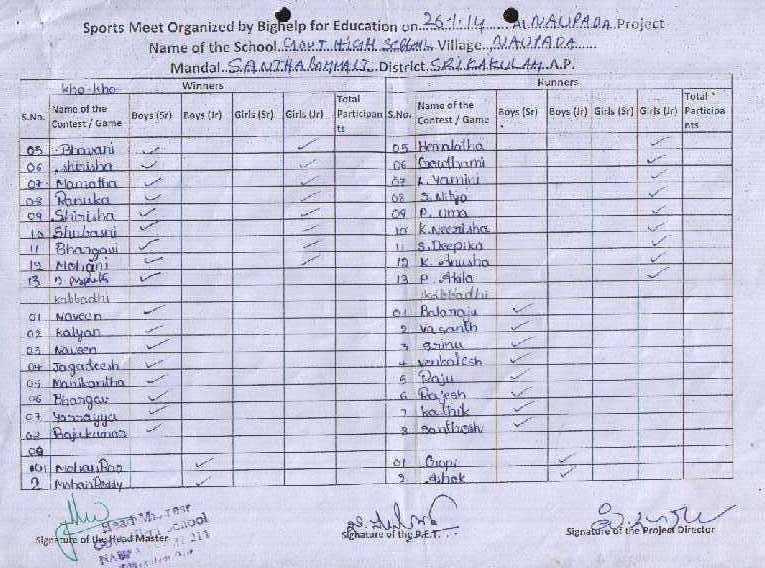 Sports Meet Organized by Bighelp for Education on 25.1.14 At NAUPADA Project
Name of the School GOVT HIGH SCHOOL Village NAUPADA
Mandal SANTHABOMMALI District SRIKAKULAM A.P.
kho-kho Winners Runners
S.No. Name of the Contest / Game Boys (Sr) Boys (Jr) Girls (Sr) Girls (Jr) Total Participants S.No. Name of the Contest / Game Boys (Sr) Boys (Jr) Girls (Sr) Girls (Jr) Total Participants
05 Bhavani ✓ ✓ 05 Hemalatha ✓
06 Shirisha ✓ ✓ 06 Gowthami ✓
07 Mamatha ✓ ✓ 07 L. Yamini ✓
08 Ranuka ✓ ✓ 08 S. Nitya ✓
09 Shirisha ✓ ✓ 09 P. Uma ✓
10 Shubasni ✓ ✓ 10 K. Neerisha ✓
11 Bhargavi ✓ ✓ 11 S. Deepika ✓
12 Mohani ✓ ✓ 12 K. Anusha ✓
13 ✓ 13 P. Akila ✓
kabbadhi kabbadhi
01 Naveen ✓ 01 Balaraju ✓
02 Kalyan ✓ 2 Vasanth ✓
03 Naveen ✓ 3 Srinu ✓
04 Jagadeesh ✓ 4 Venkatesh ✓
05 Manikantha ✓ 5 Raju ✓
06 Bhargav ✓ 6 Rajesh ✓
07 Yarrayya ✓ 7 Kathik ✓
08 Rajukumar ✓ 8 Santhosh ✓
09
01 Mohan Rao ✓ 01 Gopi ✓
2 Mohan Reddy ✓ 2 Ashok ✓
Head Master
School
Signature of the Head Master Signature of the P.E.T. Signature of the Project Director